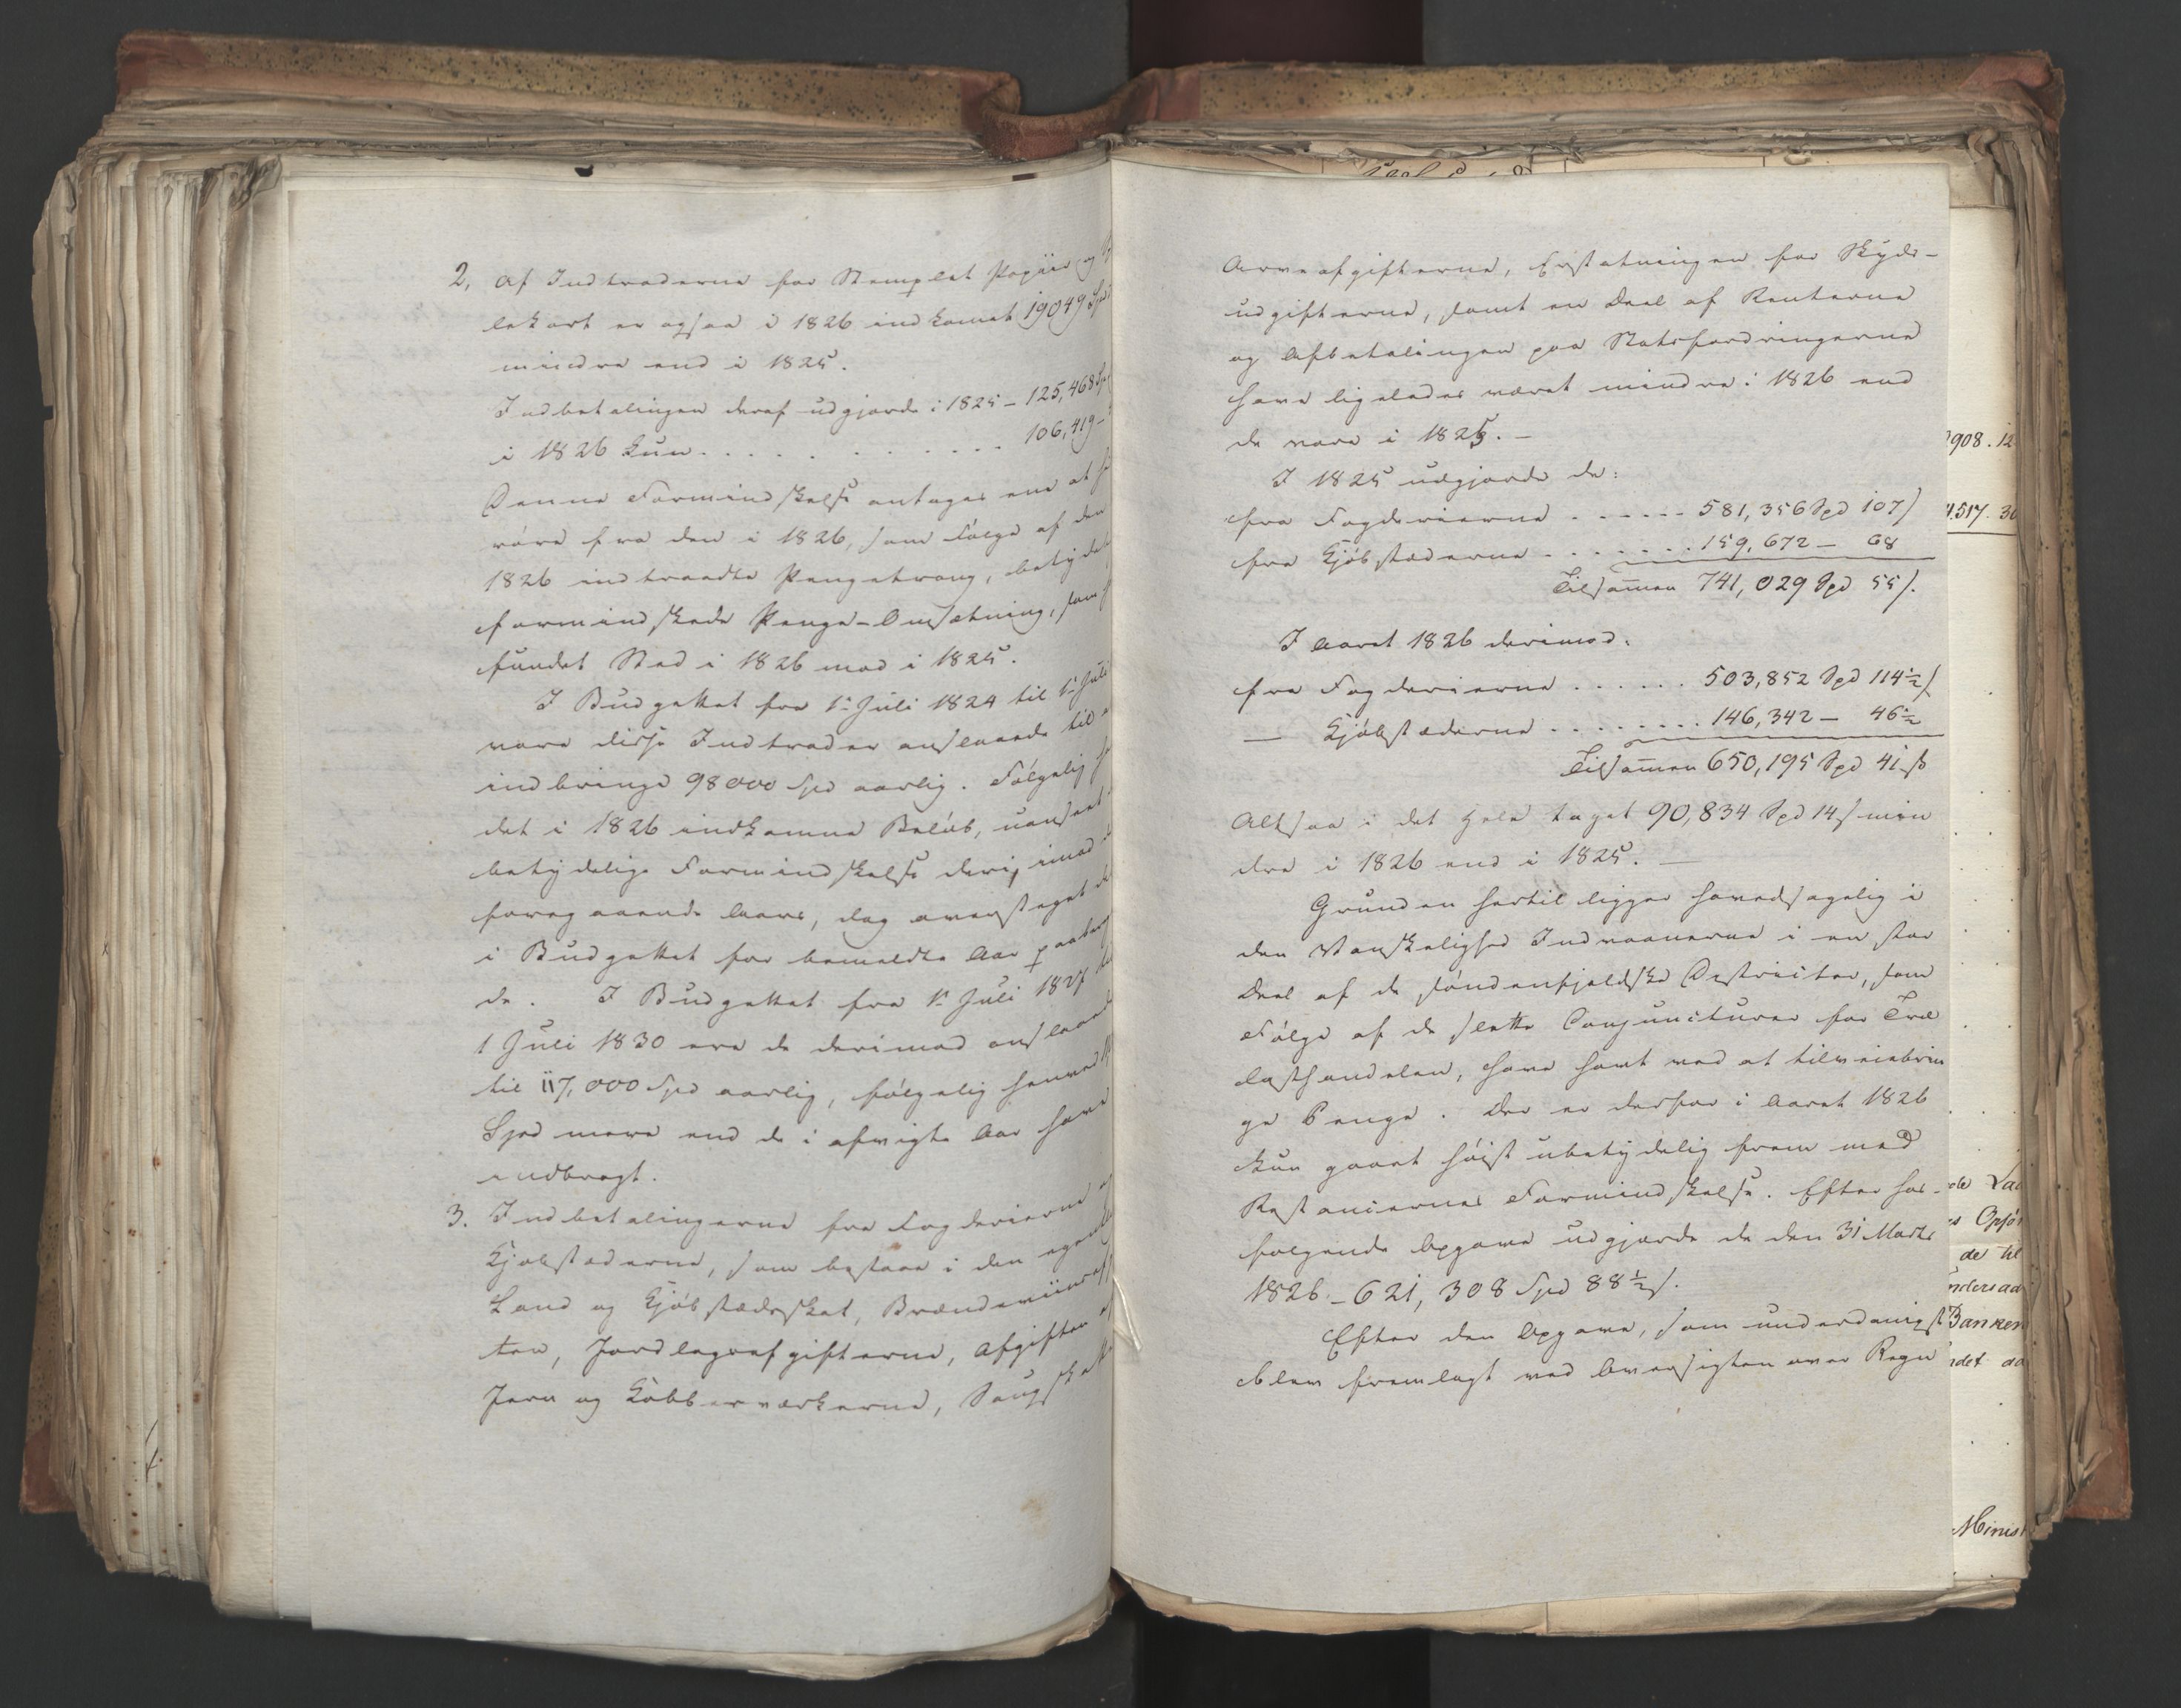 2, Af Indtraderne for Stemplet Papiir og
lekort er ogsaa i 1826 indkomet 19049 Spd
mindre end i 1825.
Indbetalingen deraf udgjorde i 1825 - 125,468 Spd
i 1826 kun . . . . . . . . . . . 106,419 -
Denne Formindskelse antages ene at
røre fra den i 1826, som Følge af den
1826 indtraadte Pengetrang, betyde
formindskede Penge-Omsætning, som
fundet Sted i 1826 mod i 1825.
I Budgettet fra 1ste Juli 1824 til 1ste Juli
vare disse Indtrader anslaaede til
indbringe 98000 Spd aarlig. Følgelig
det i 1826 indkomne Beløb, uanseet
betydelige Formindskelse deri, imod
foregaaende Aars, dog oversteget
i Budgettet for bemeldte Aar paabereg
de. I Budgettet fra 1ste Juli 1827
1 Juli 1830 ere de derimod anslaaede
til 117,000 Spd aarlig, følgelig henved
Spd mere end de i afvigte Aar have
indbragt.
3. Indbetalingerne fra Fogderierne
Kjøbstæderne, som bestaae i den egentl
Land og Kjøbstædsskat, Brændeviinsaf
ten, Jordlegesafgifterne, Afgiften
Jern og Kobberværkerne, Saugsk
Arveafgifterne, Erstatningen for Skyds-
udgifterne, samt en Deel af Renterne
og Afbetalingen paa Statsfordringerne
have ligeledes været mindre i 1826 end
de vare i 1825. -
I 1825 udgjorde de:
fra Fogderierne . . . . . . 581,356 Spd 107 s
fra Kjøbstæderne . . . . . . . 159,672 - 68
Tilsammen 741,029 Spd 55 s.
I Aaret 1826 derimod:
fra Fogderierne . . . . . . 503,852 Spd 114½ s
— Kjøbstæderne . . . . . . . . 146,342 - 46½
Tilsammen 650,195 Spd 41 s
Altsaa i det Hele taget 90,834 Spd 14 s min
dre i 1826 end i 1825. —
Grunden hertil ligger hovedsagelig i
den Vanskelighed Indvaanerne i en stor
Deel af de søndenfjeldske Districter, som
Følge af de slette Conjuncturer for Træ
lasthandelen, have havt ved at tilveiebrin
ge Penge. Der er derfor i Aaret 1826
kun gaaet høist ubetydelig frem med
Restanciernes Formindskelse. Efter hos-
følgende Opgave udgjorde de den 31 Marts
1826 - 621,308 Spd 88½ s.
Efter den Opgave, som underdanigst
blev fremlagt ved Oversigten over Regn
908. 12
4.517. 30
Opfør
de til
Banken
ndet
Minis